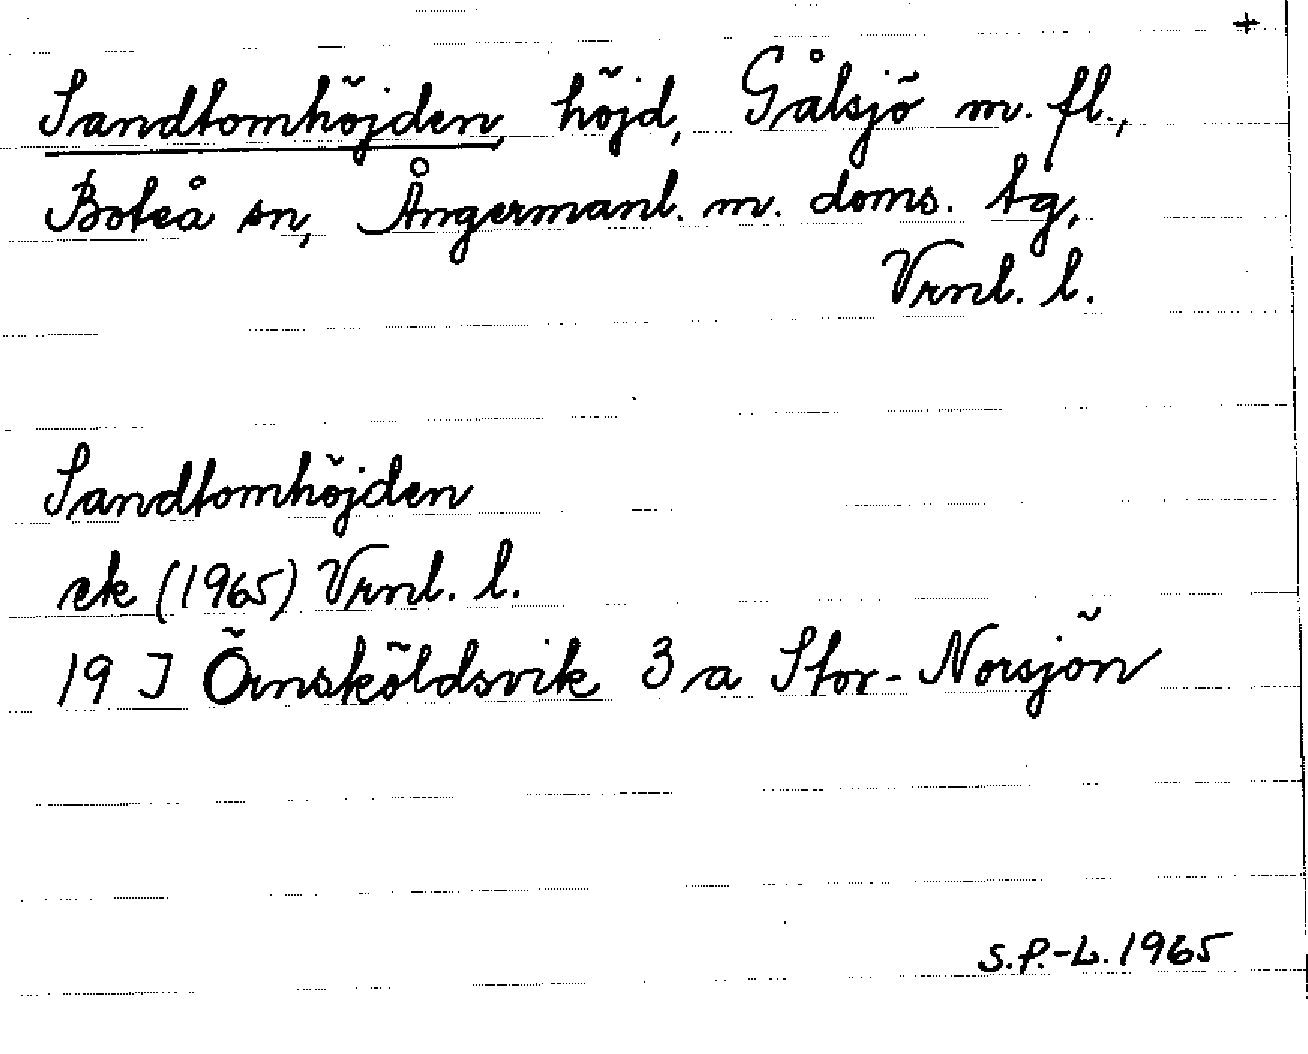 +
Sandtomhöjden, höjd, Gålsjö m. fl.,
Boteå sn, Ångermanl. m. doms. tg,
Vrnl. l.
Sandtomhöjden
ek (1965) Vrnl. l.
19 J Örnsköldsvik 3 a Stor-Norsjön
S.P.-L. 1965